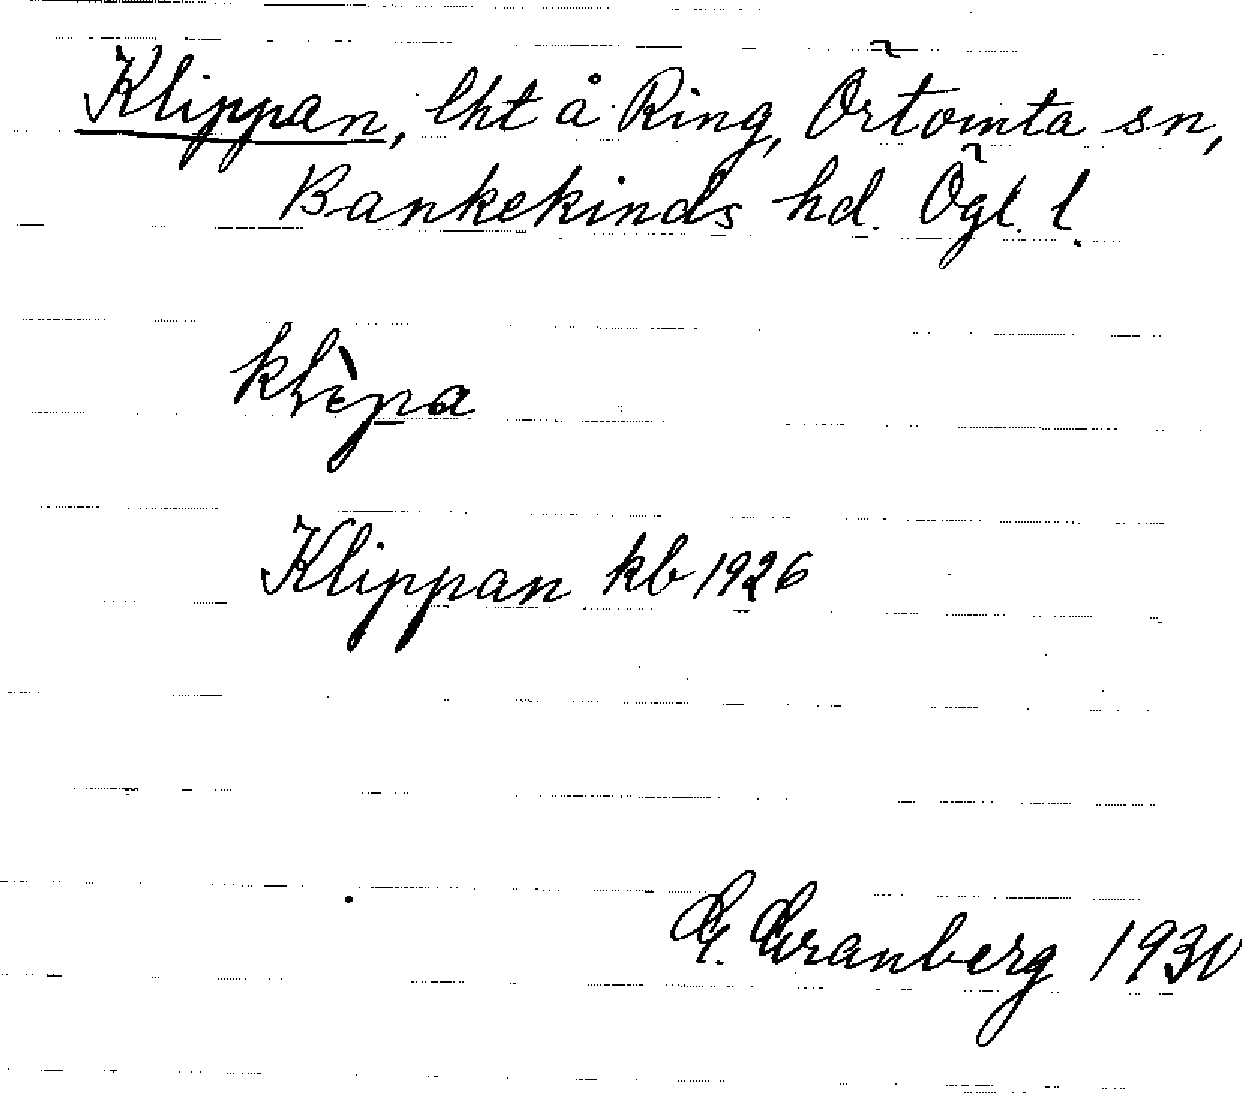 Klippan, lht å Ring, Örtomta sn,
Bankekinds hd. Ögl. l.
klìpa
Klippan kb 1926
G. Granberg 1930